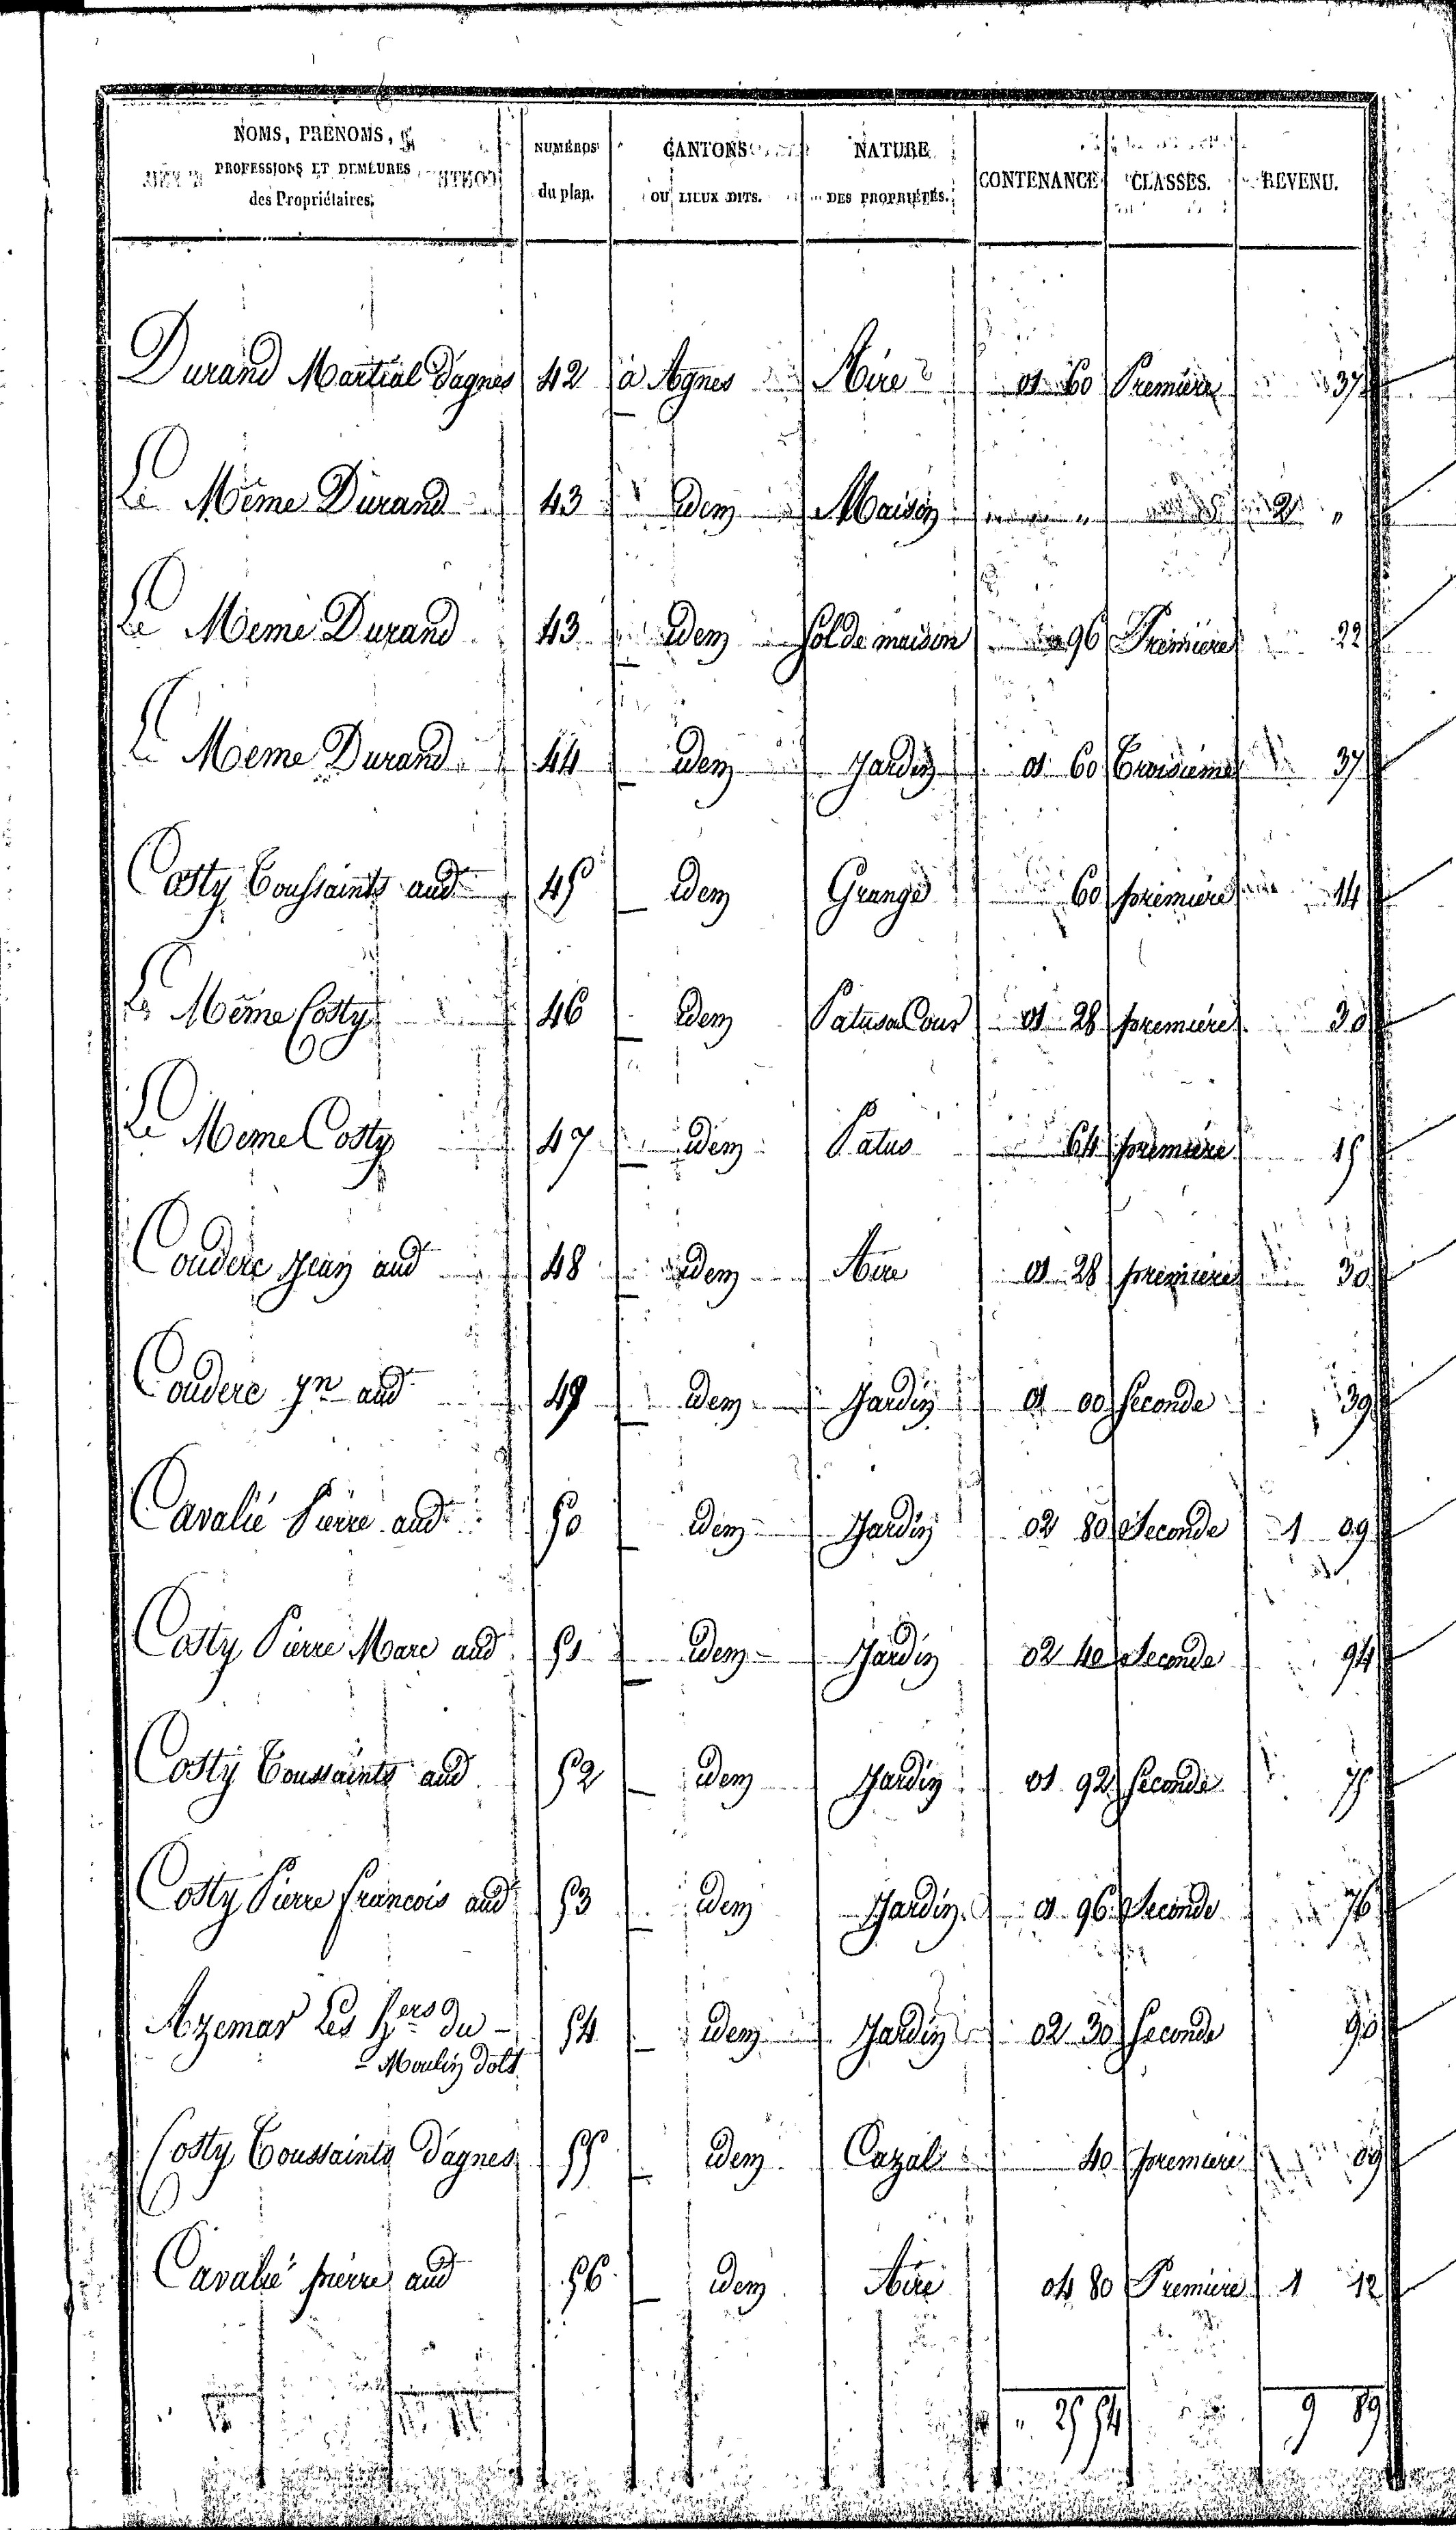 NOMS, PRÉNOMS, NUMÉROS CANTONS NATURE
PROFESSIONS ET DEMEURES CONTENANCE CLASSES. REVENU.
des Propriétaires. du plan. OU LIEUX DITS. DES PROPRIÉTÉS.
Durand Martial d'agnes 42 à Agnes Aire 01 60 Premiere 37
Le Même Durand 43 idem Maison " 2 "
Le Meme Durand 43 idem Sol de maison 96 Premiere 22
Le Meme Durand 44 idem Jardin 01 60 Troisieme 37
Costy Toussaints aud 45 idem Grange 60 premiere 14
Le Même Costy 46 idem Patus ou Cour 01 28 premiere 30
Le Meme Costy 47 idem Patus 64 premiere 15
Couderc Jean aud 48 idem Aire 01 28 premiere 30
Couderc Jn aud 49 idem Jardin 01 00 Seconde 39
Cavalié Pierre aud 50 idem Jardin 02 80 Seconde 1 09
Costy Pierre Marc aud 51 idem Jardin 02 40 Seconde 94
Costy Toussaints aud 52 idem Jardin 01 92 Seconde 75
Costy Pierre francois aud 53 idem Jardin 01 96 Seconde 76
Azemar Les hers du - 54 idem Jardin 02 30 Seconde 90
- Moulin d'olt
Costy Toussaints d'agnes 55 idem Cazal 40 premiere 09
Cavalié pierre aud 56 idem Aire 04 80 Premiere 1 12
" 25 54 9 89